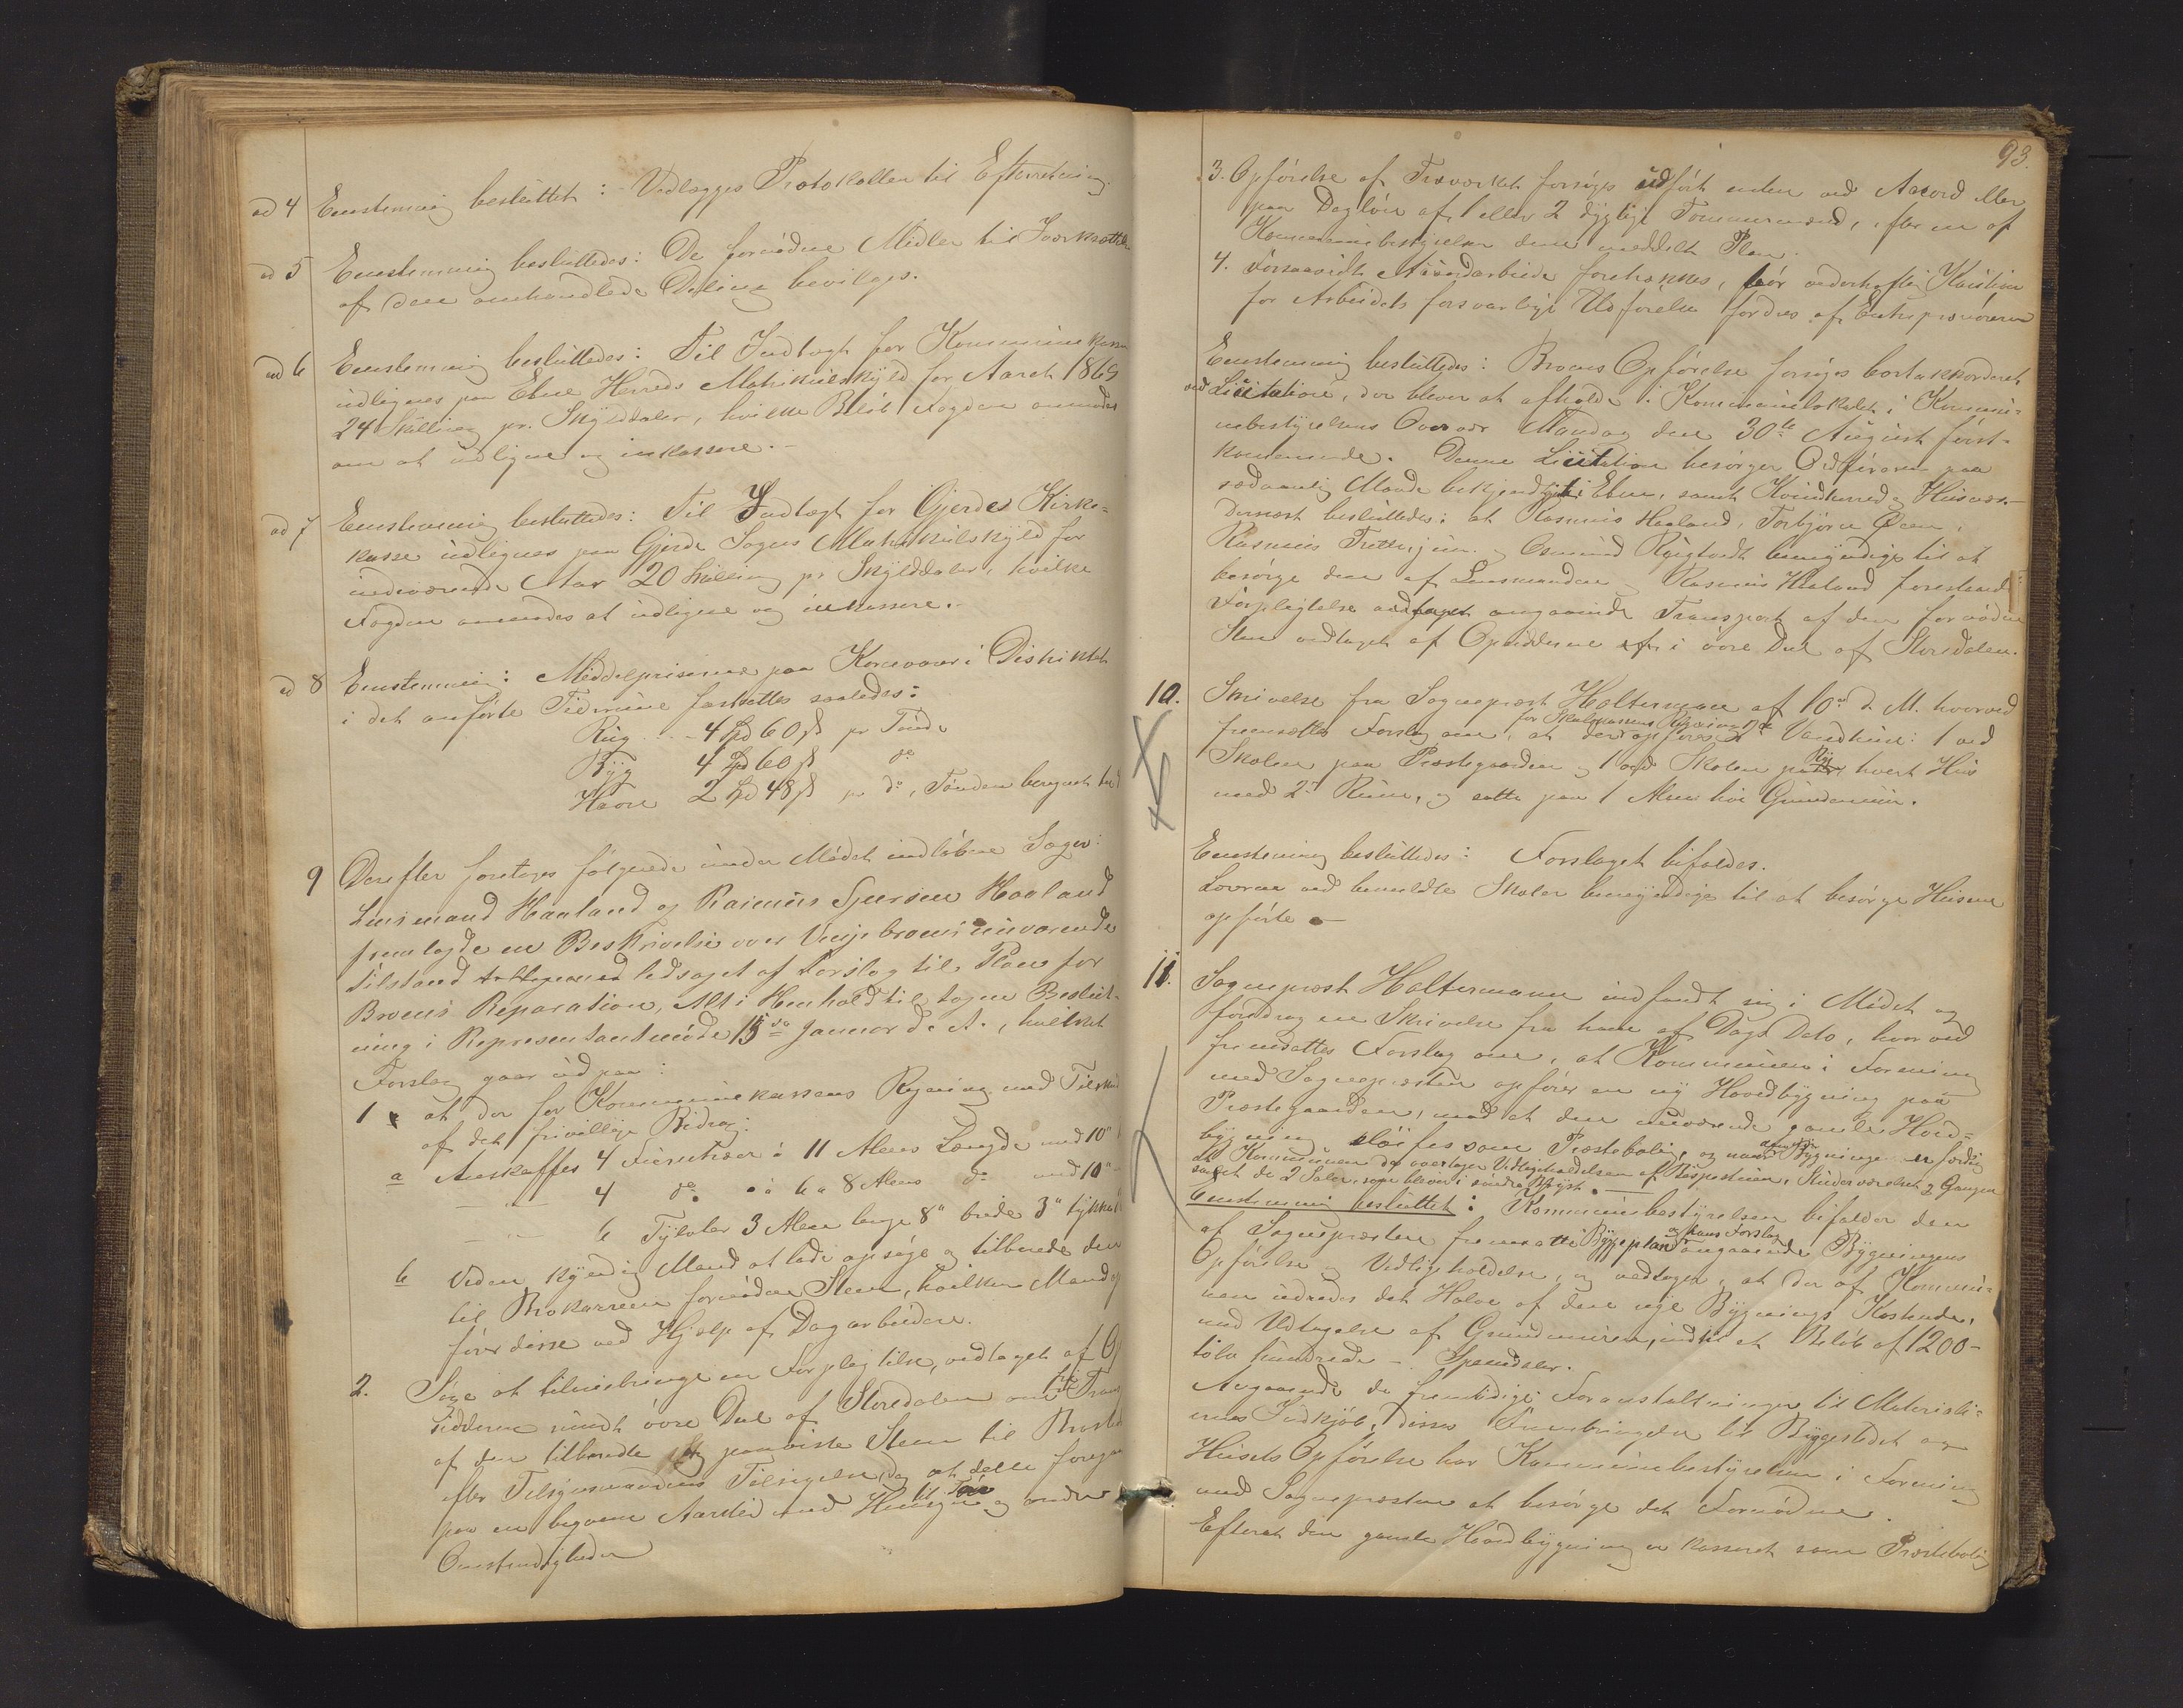 ad 4 Eenstemmig besluttet: Vedlægges Protokollen til Efterretning.
ad 5 Eenstemmig besluttedes: De fornødne Midler til Iværksættelse
af den omhandlede Deling bevilges.
ad 6 Eenstemmig besluttedes: Til Indtægt for Kommunekassen
udlignes paa Etne Herreds Matrikulskyld for Aaret 1869
24 Skilling pr. Skylddaler, hvilke Beløb Fogden anmodes
om at udligne og inkassere.-
ad 7 Eenstemmig besluttedes: Til Indtægt for Gjerdes Kirke-
kasse udlignes paa Gjerde Sogns Matrikulskyld for
indeværende Aar 20 Skilling pr Skylddaler, hvilke
Fogden anmodes at udligne og inkassere.-
ad 8 Eenstemmig: Middelpriserne paa Kornvarer i Distriktet
i det anførte Tidsrum fastsættes saaledes:
Rug - 4 Spd 60 ß pr Tønde
Byg 4 Spd 60 ß do
Havre 2 Spd 48 ß pr do, Tønden beregnet
9 Derefter foretoges følgende under Mødet indløbne Sager:
Lensmand Haaland og Rasmus Sjursen Haaland
fremlagde en Beskrivelse over Broens nuværende
Tilstand ledsaget af Forslag til Plan for
Broens Reparation, Alt i Henhold til tagen Beslut-
ning i Representantmøde 15de Januar d. A., hvilket
Forslag gaar ud paa:
1 at der for Kommunekassens Regning med Tilskud
af det frivillige Bidrag:
a Anskaffes 4 Furutræer à 11 Alens Længde med 10"
- " - 4 do à 6 a 8 Alens do med 10"
- " - 6 Tylvter 3 Alen lange 8" brede 3" tykke
b Veden kyndig Mand at lade opsøge og tilberede den
til Brokarrene fornødne Steen, hvilken Mand
fører disse ved Hjælp af Dagarbeidere.
2. Søge at tilveiebringe en Forpligtelse, vedtaget af Op
sidderne rundt øvre Deel af Stordalen om fri Trans
af den tilberedte og paaviste Steen til Brosted
efter Tilsynsmandens Tilsigelse, dog at dette foregaar
paa en beqvem Aarstid med Hensyn til Føre og andre
Omstændigheder
93.
3. Opførelse af Træværket forsøges udført enten ved Akkord eller
paa Dagløn af 1 eller 2 dygtige Tømmermænd, efter en af
Kommunebestyrelsen dem meddelt Plan.
4. Forsaavidt Akkordarbeide foretrækkes, bør vederheftig Kaution
for Arbeidets forsvarlige Udførelse fordres af Entreprenøren
Eenstemmig besluttedes: Broens Opførelse forsøges bortakkorderet
ved Licitation, der bliver at afholde i Kommunelokalet i Kommu-
nebestyrelsens Overvær Mandag den 30te August først-
kommende. Denne Licitation besørger Ordføreren paa
sædvanlig Maade bekjendtgjort i Etne, samt Kvindherred og
Dernæst besluttedes: at Rasmus Haaland, Torbjørn Øien,
Rasmus Trettejun. og Osmund Rygtvedt bemyndiges til at
besørge den af Lensmanden og Rasmus Haaland foreslaaede
Forpligtelse angaaende Transport af den fornødne
Sten vedtaget af Opsidderne i øvre Deel af Stordalen.
10. Skrivelse fra Sogneprest Holtermann af 10de d. M. hvorved
for Skolekassens Regning
fremsættes Forslag om, at der opføres 2de Vandhuse: 1 ved
Skolen paa Prestegaarden og 1 ved Skolen paa hvert Hus
med 2de Rum, og satte paa 1 Alen høi Grundmuur.
Eenstemmig besluttedes: Forslaget bifaldes.
Lærerne ved bemeldte Skoler bemyndiges til at besørge Husene
opførte -
11. Sogneprest Holtermann indfandt sig i Mødet og
foredrog en Skrivelse fra ham af Dags Dato, hvorved
fremsattes Forslag om, at Kommunen i Forening
med Sognepresten opfører en ny Hovedbygning paa
Prestegaarden, mod at den nuværende gamle Hoved-
bygning sløifes som Prestebolig, og naar denne Bygning er færdig
at Kommunen da overtager Vedligeholdelsen af Studerværelset og Gangen
samt de 2 Saler, som bliver i søndre
Eenstemmig besluttet: Kommunebestyrelsen bifalder den
af Sognepresten fremsatte Byggeplan og hans Forslag angaaende Bygningens
Opførelse og Vedligeholdelse, og vedtager, at der af Kommu-
nen udredes det Halve af den nye Bygnings Kostende,
med Udtagelse af Grundmuren, indtil et Beløb af 1200-
tolv hundrede - Speciedaler.
Angaaende de fremtidige Foranstaltninger til Materiali-
ernes Indkjøb, disses Frembringelse til Byggestedet og
Husets Opførelse har Kommunebestyrelsen i Forening
med Sognepresten at besørge det Fornødne.
Efterat den gamle Hovedbygning er kasseret som Prestebolig